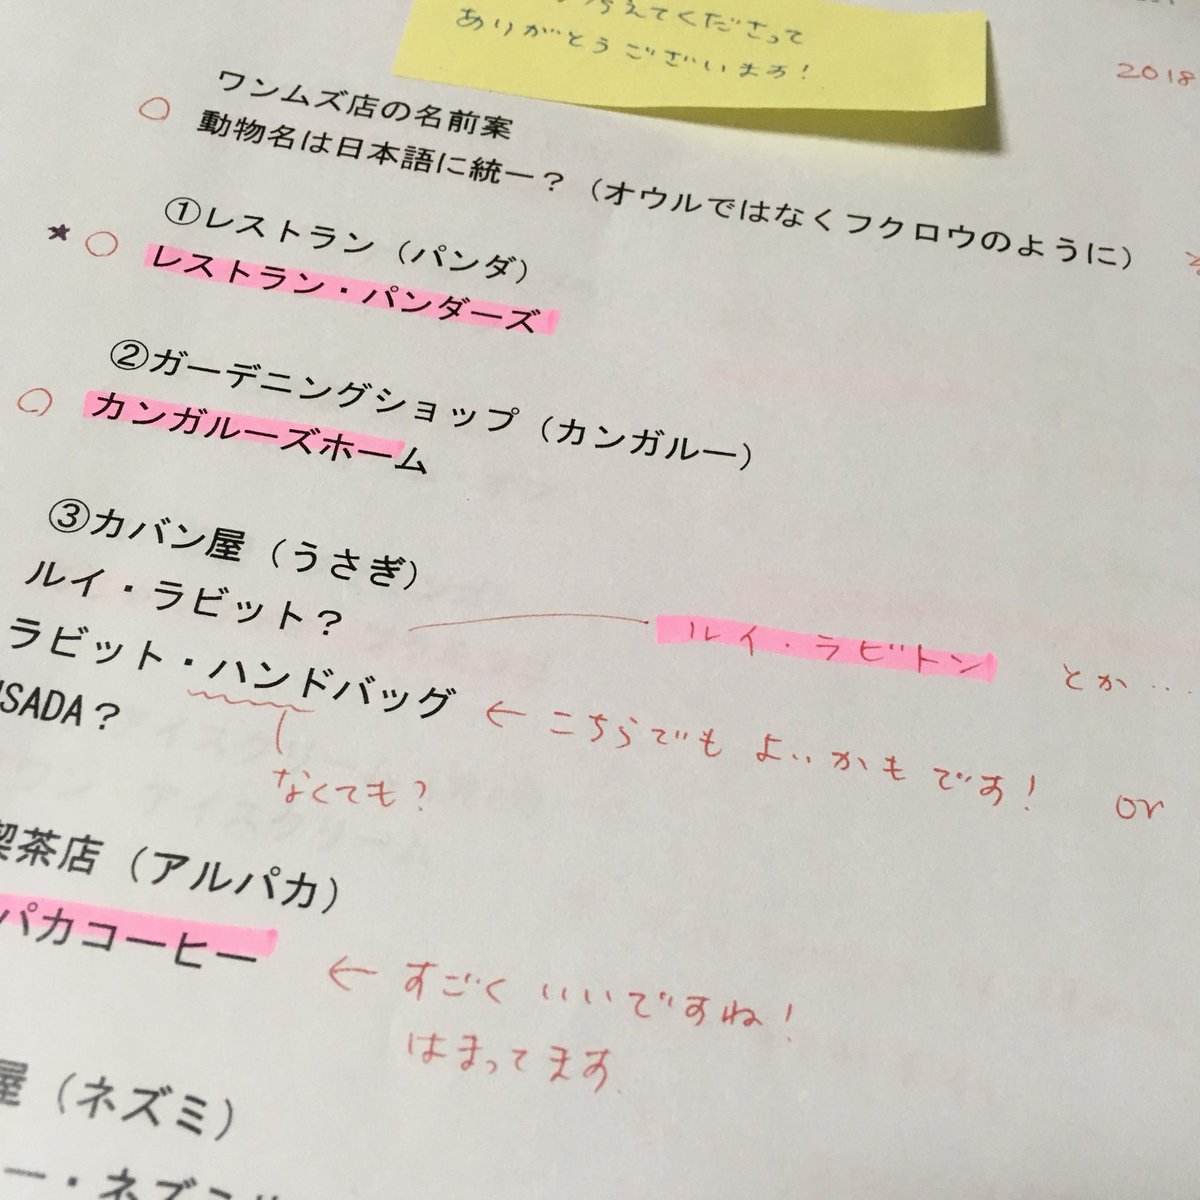 えてくださって
ありがとうございます!
2018
ワンムズ店の名前案
動物名は日本語に統一?(オウルではなくフクロウのように)
①レストラン(パンダ)
★ レストラン・パンダーズ
②ガーデニングショップ(カンガルー)
カンガルーズホーム
③カバン屋(うさぎ)
ルイ・ラビット?
ルイ・ラビトン とか…
ラビット・ハンドバッグ
← こちらでも よいかもです! or
SADA?
なくても?
茶店(アルパカ)
パカコーヒー
← すごく いいですね!
はまってます
屋(ネズミ)
ー・ネズミ